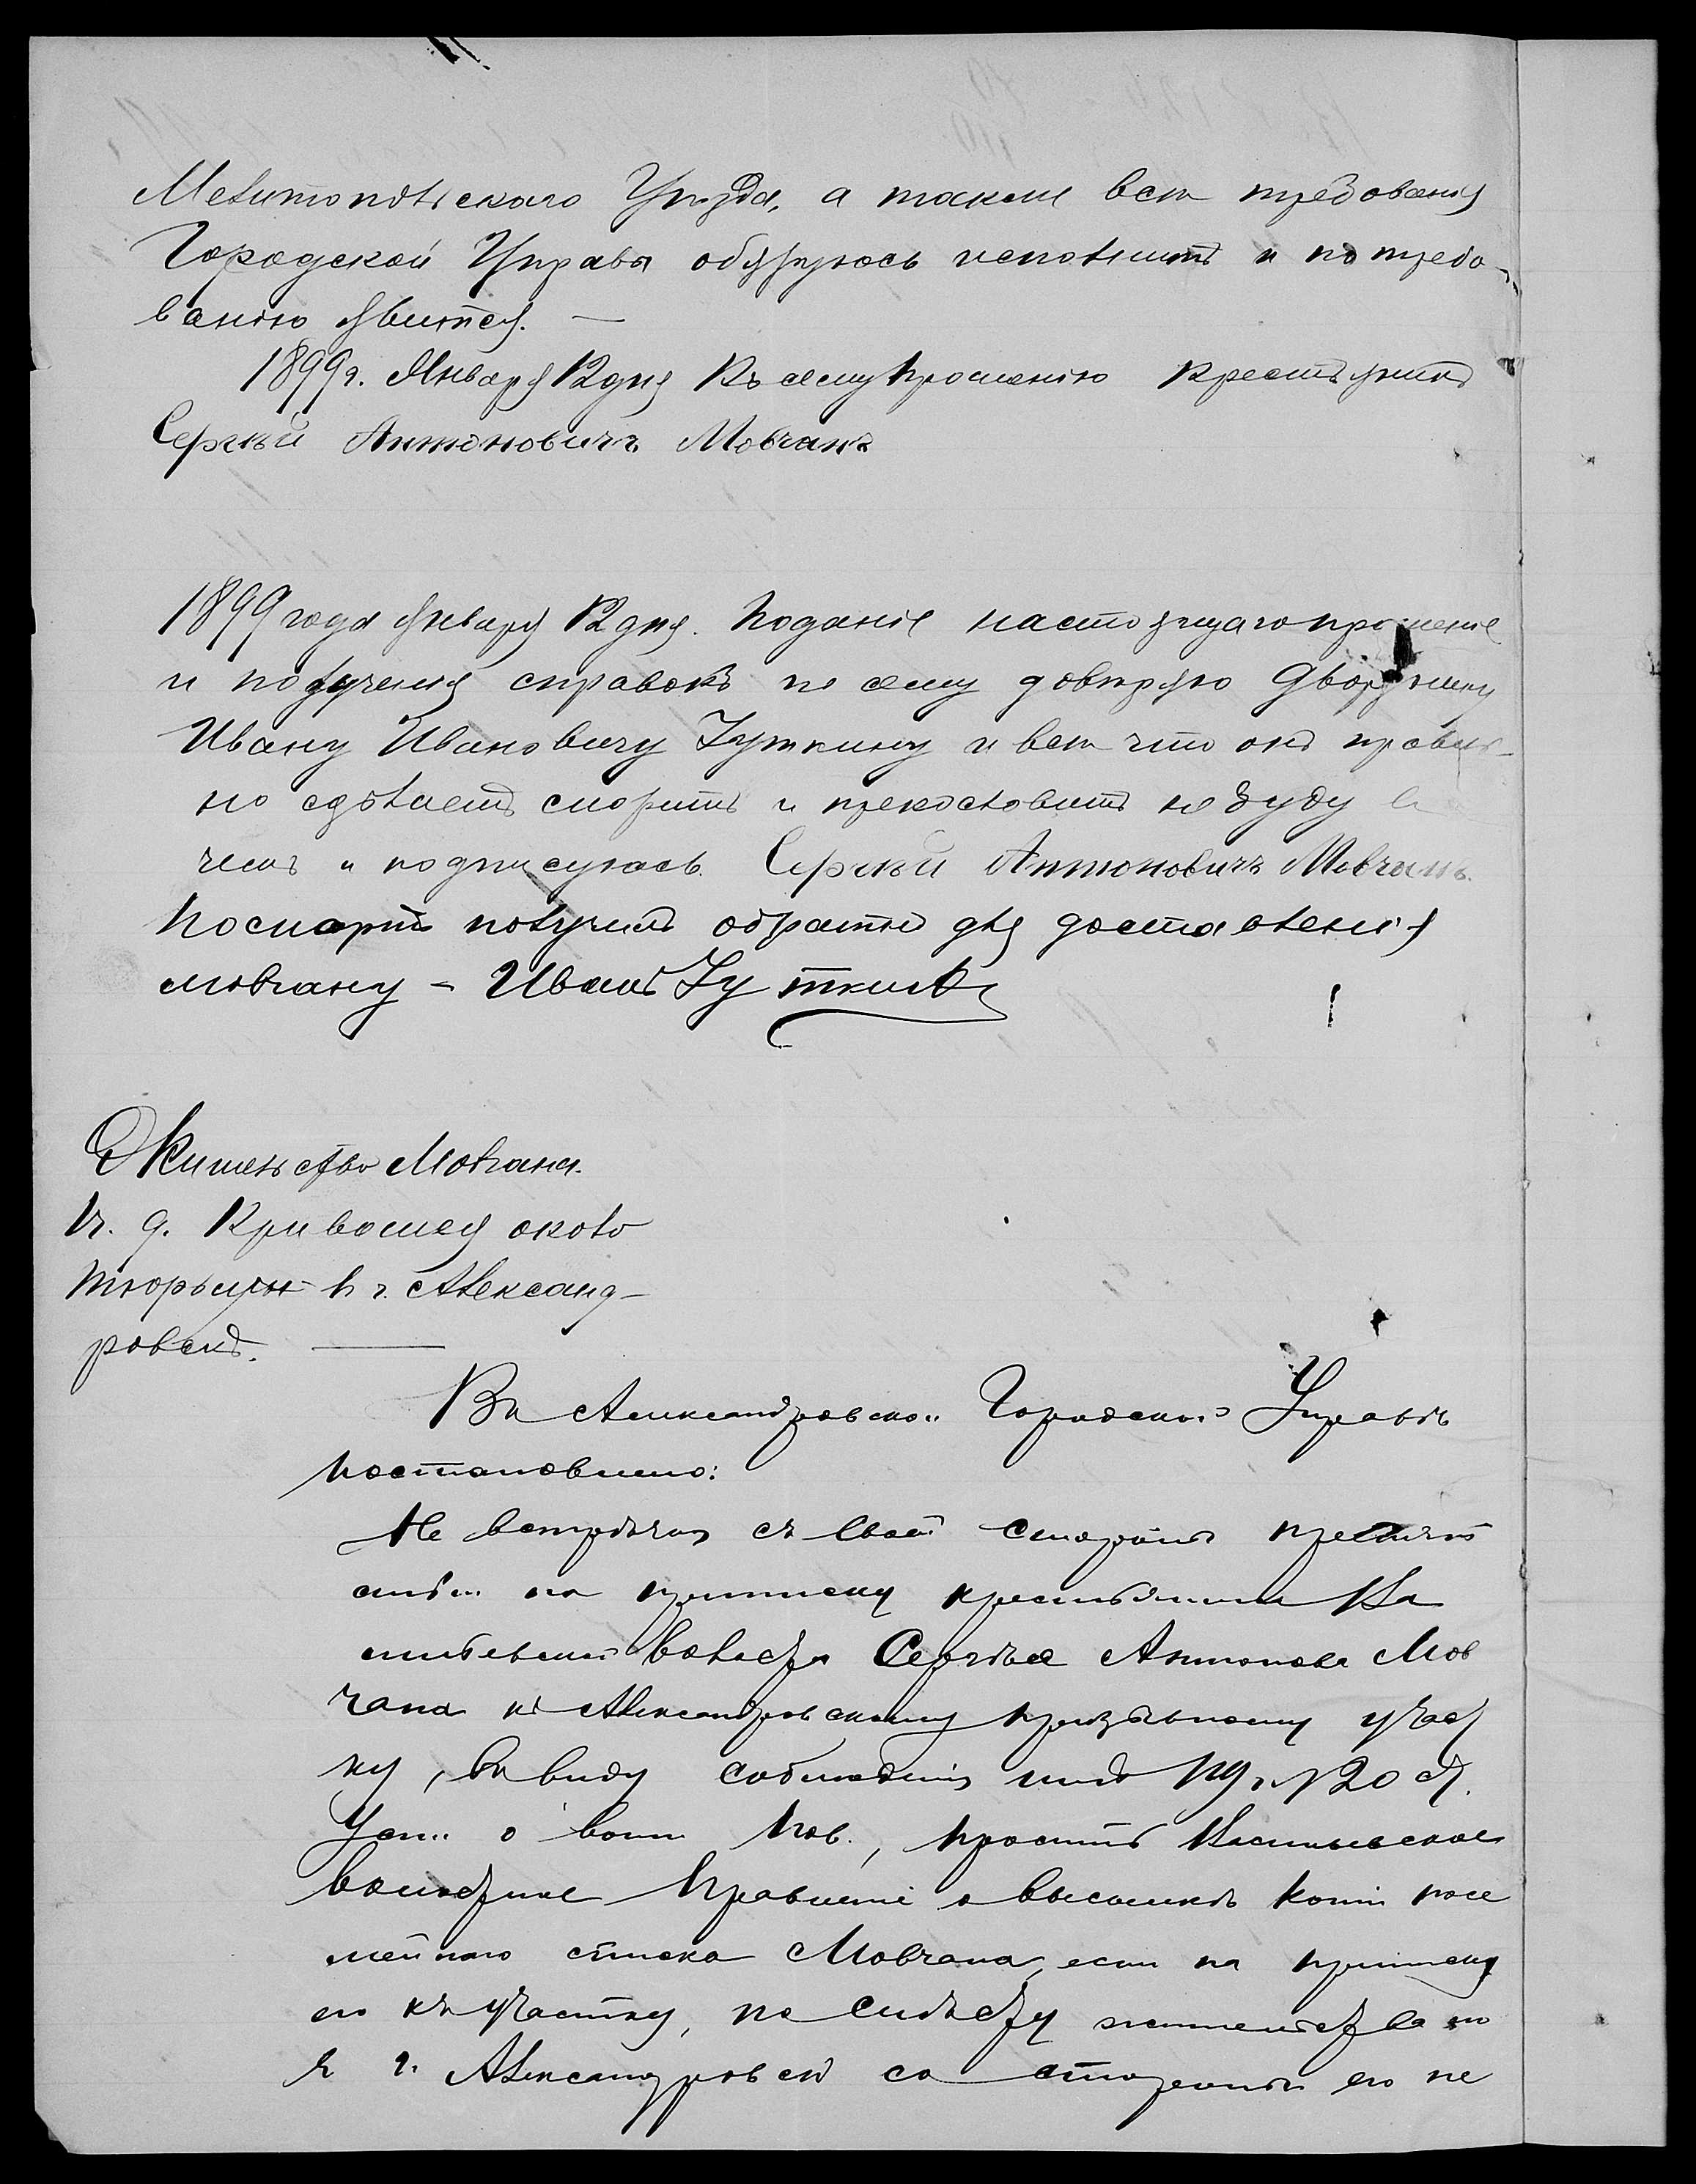 Мелитопольскаго Уѣзда, а также всѣ требованія
Городской Управы обязуюсь исполнить и по требо-
ванію явится. —
1899 г. Января 12 дня Къ сему прошенію крестьянинъ
Сергѣй Антоновичъ Мовчанъ
1899 года Января 12 дня. Поданіе настоящаго прошенія
и полученія справокъ по сему довѣряю Дворянину
Ивану Ивановичу и всѣ что онъ правиль-
но сдѣлаетъ спорить и прекословить не буду в
чемъ и подписуюсь. Сергѣй Антоновичъ Мовчанъ.
Паспортъ получилъ обратно для доставленія
Мовчану - Иванъ
Жительство Мовчана.
въ д. Кривошея около
тюрьмы в г. Александ-
ровскѣ. —
Въ Александровской Городской Управѣ
постановлено:
Не встрѣчая съ своей стороны препят
ствія на приписку крестьянина Ва
сильевской волости Сергѣя Антонова Мов
чана къ Александровскому призывному участ
ку, въ виду соблюденія имъ 119 и 120 ст.
Уст. о воин. пов., просить Васильевское
волостное Правленіе о высылкѣ копіи посе
мейного списка Мовчана, если на приписку
его къ участку, по жительства его
в г. Александровскѣ со стороны его не